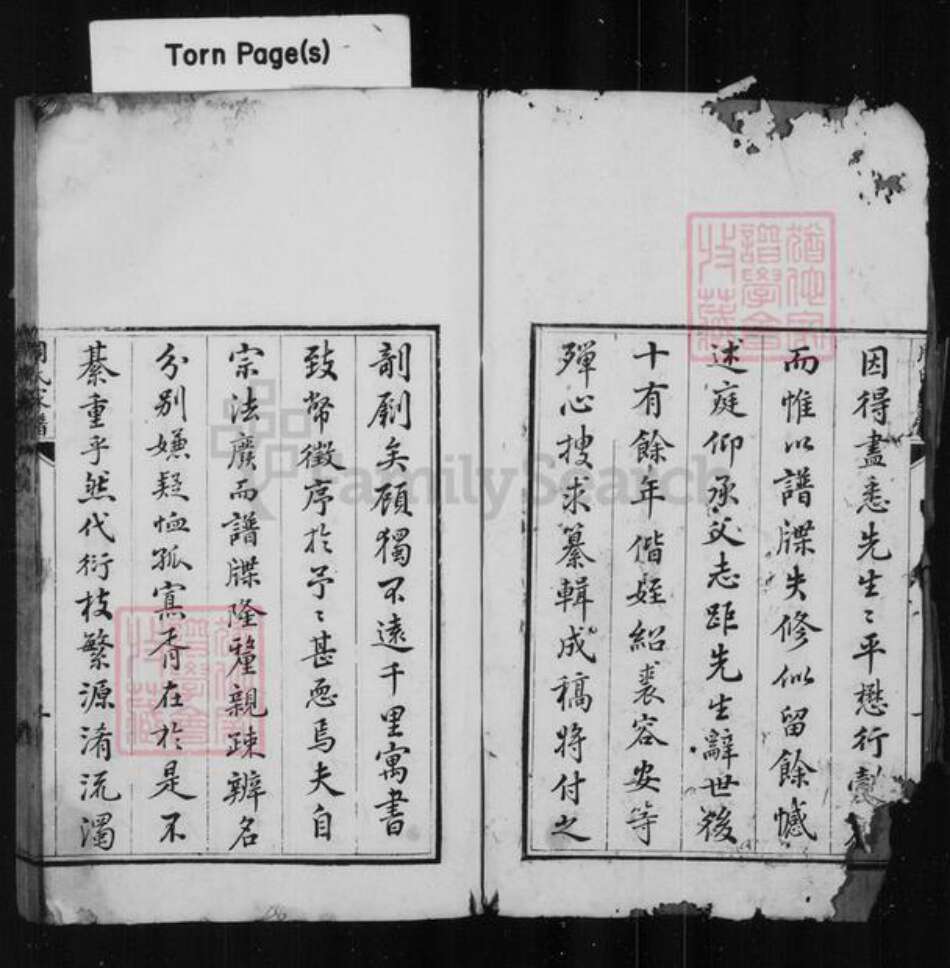 Torn Page(s)
因得盡悉先生〻平懋行
而惟以譜牒失修似留餘憾
述庭仰承父志距先生辭世後
十有餘年偕姪紹裘容安等
殫心搜求纂輯成稿將付之
剞劂矣顧獨不遠千里寓書
致幣徵序於予〻甚恧焉夫自
宗法廢而譜牒隆釐親疎辨名
分別嫌疑恤孤寡胥在於是不
綦重乎然代衍枝繁源淆流濁
FamilySearch